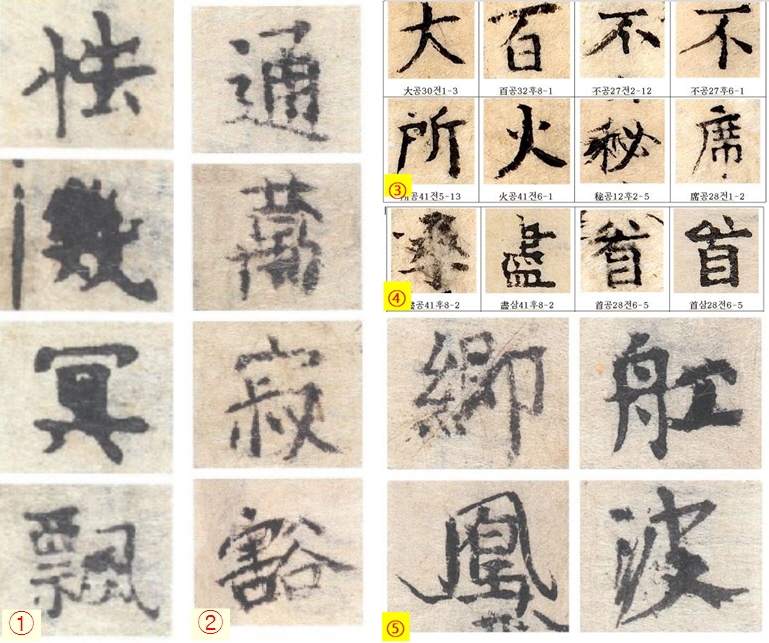 怯
冥
飄
①
通
萬
寂
豁
②
大 百 不 不
大공30전1-3 百공32후8-1 不공27전2-12 不공27후6-1
所 火 秘 席
③
공41전5-13 火공41전6-1 秘공12후2-5 席공28전1-2
盡 首 首
④
盡공41후8-2 盡삼41후8-2 首공28전6-5 首삼28전6-5
舡
凰 波
⑤